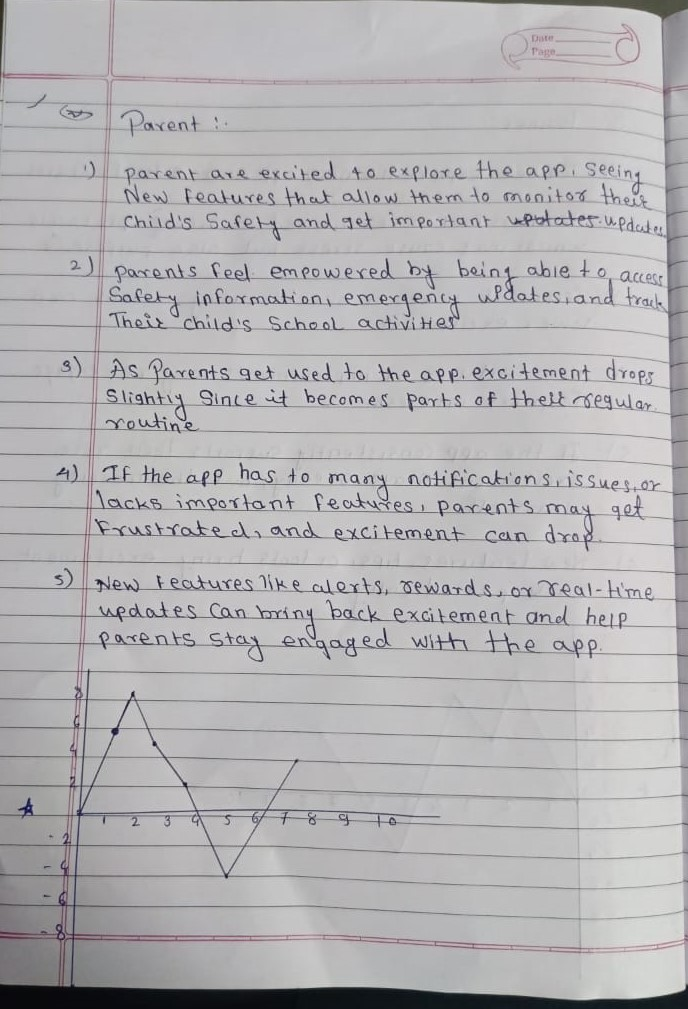 Date
Page
Parent :-
1) parent are excited to explore the app, seeing
New features that allow them to monitor their
child's Safety and get important updates.
2) parents feel empowered by being able to access
Safety information, emergency updates, and track
Their child's School activities
3) As Parents get used to the app. excitement drops
Slightly Since it becomes parts of their regular
routine
4) If the app has to many notifications, issues, or
lacks important features, parents may get
Frustrated, and excitement can drop.
5) New Features like alerts, rewards, or real-time
updates Can bring back excitement and help
parents stay engaged with the app.
8
6
4
2
1 2 3 4 5 6 7 8 9 10
-2
-4
-6
-8